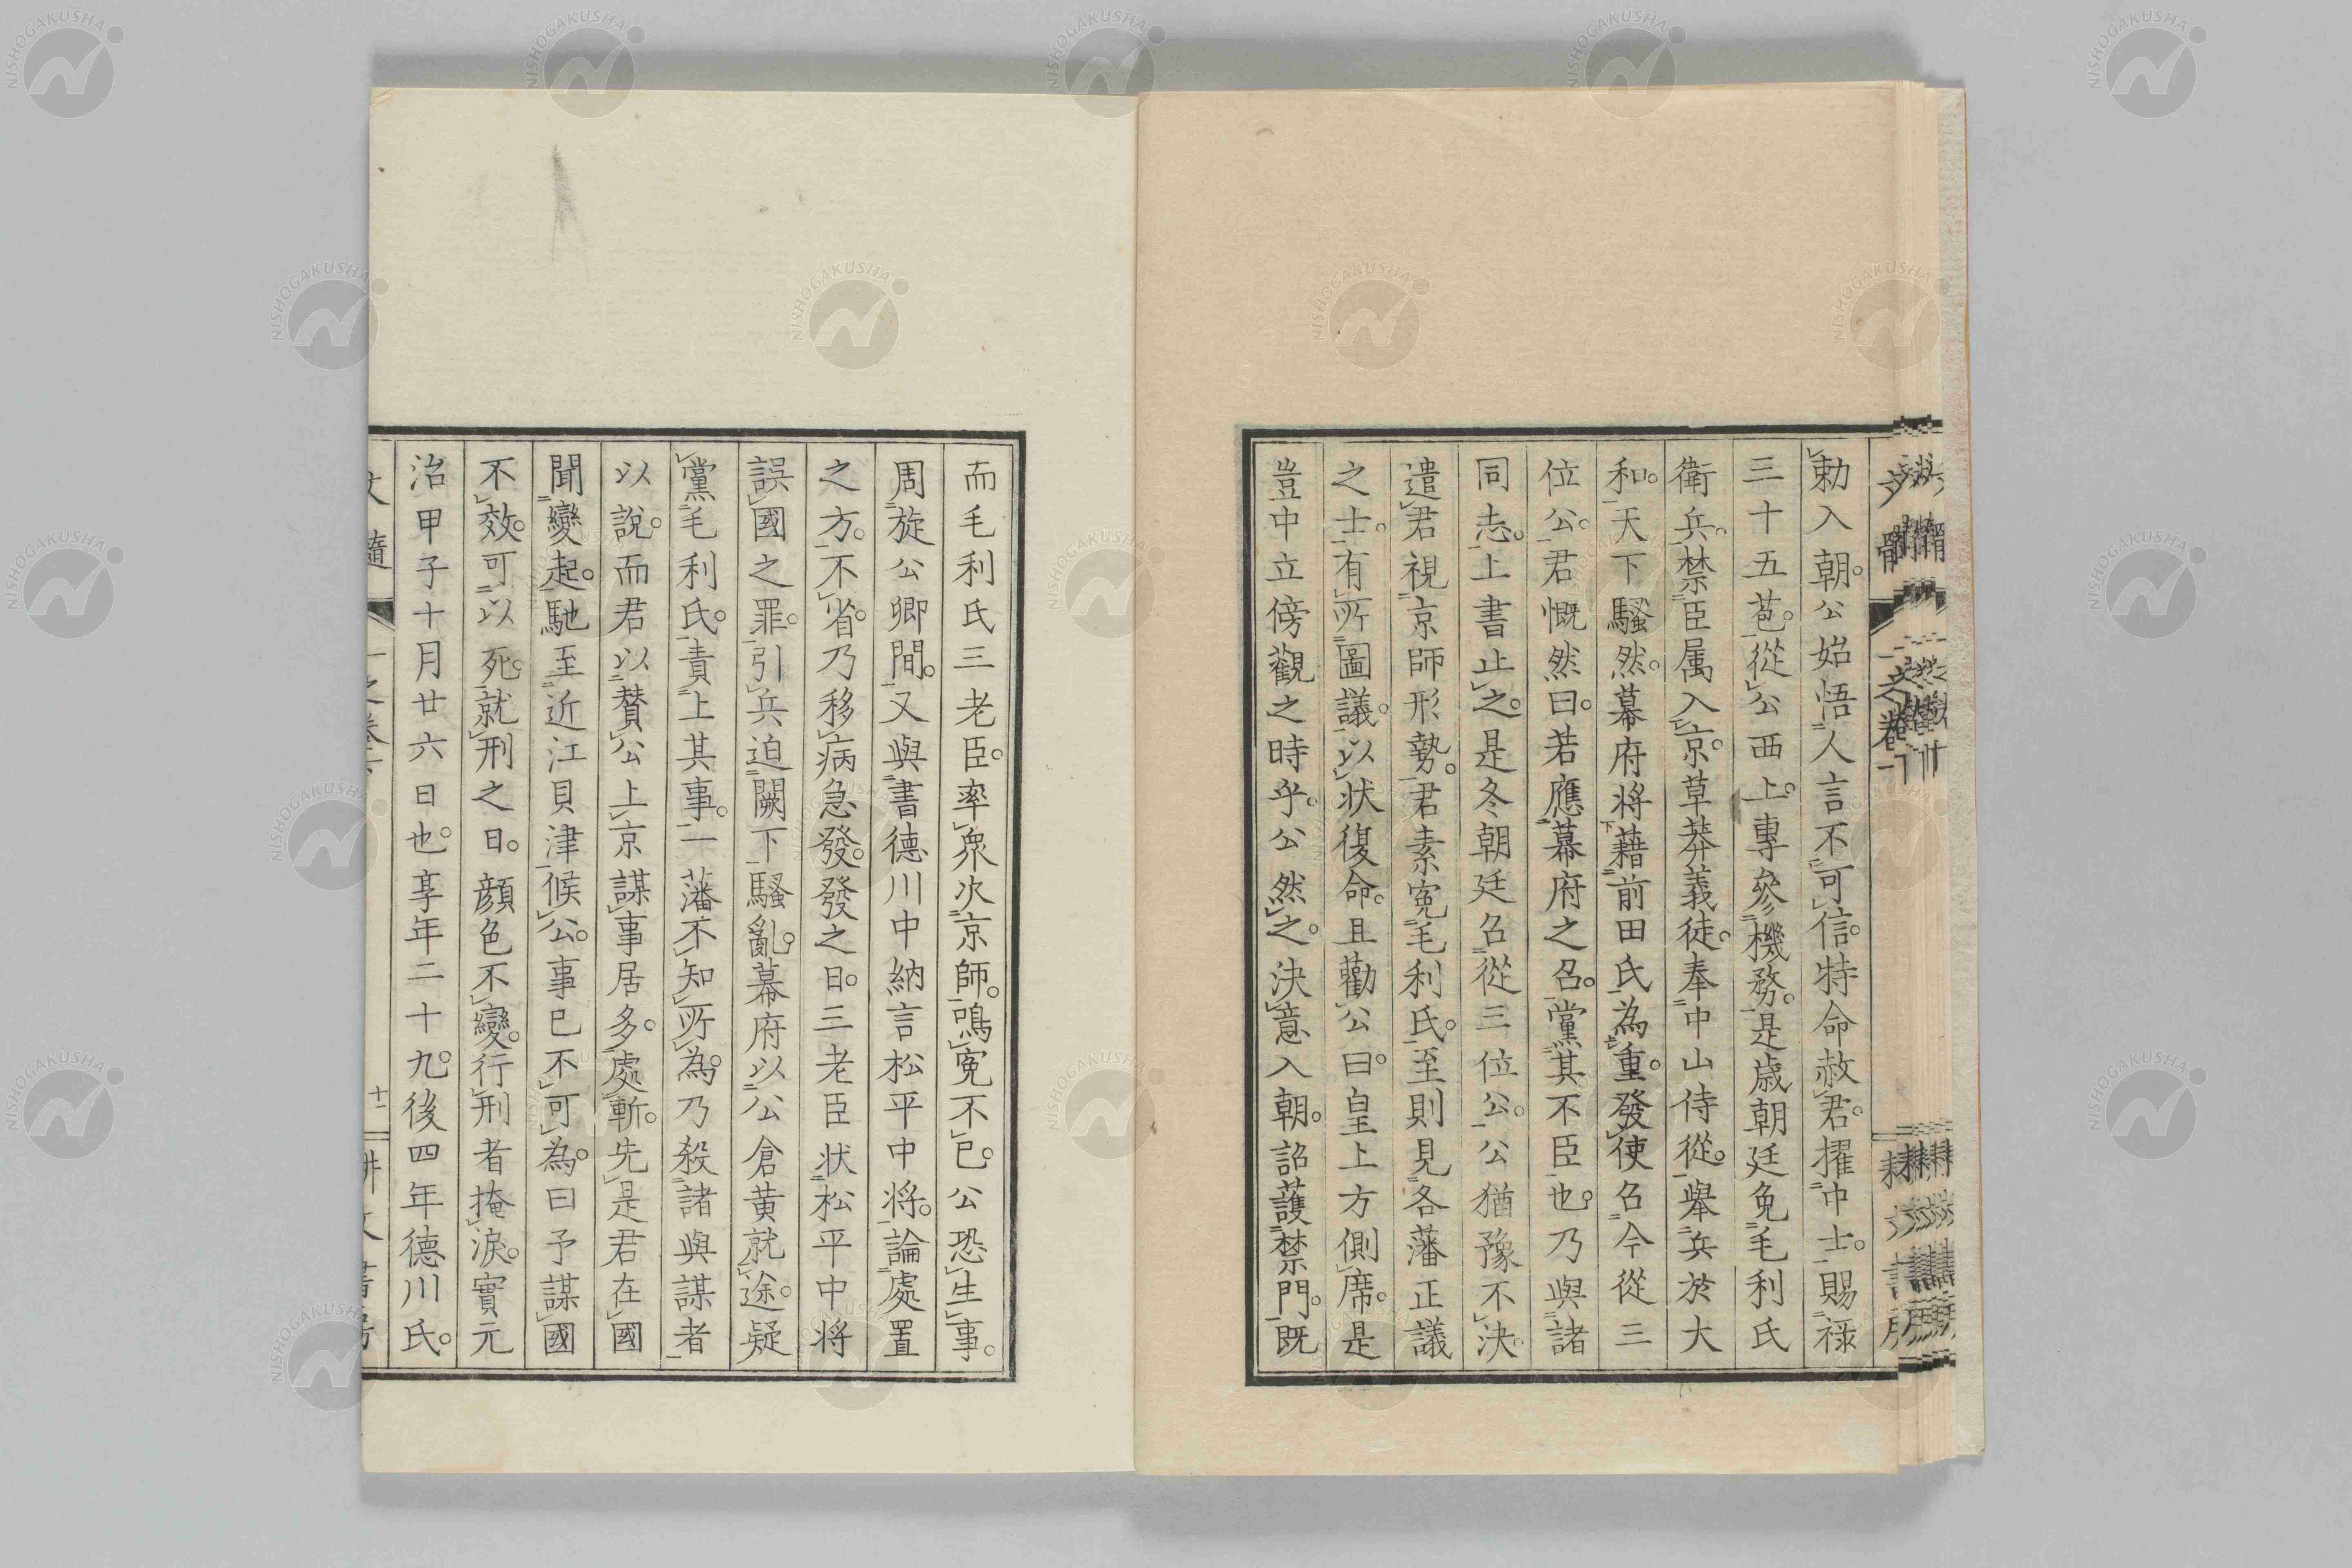 勅入朝。公始悟人言不可信。特命赦君。擢中士。賜祿
三十五苞。從公西上。專參機務。是歳朝廷免毛利氏
衛兵。禁臣属入京。草莽義徒。奉中山侍從。舉兵於大
和。天下騷然。幕府将藉前田氏為重。發使召今從三
位公。君慨然曰。若應幕府之召。黨其不臣也。乃與諸
同志。上書止之。是冬朝廷召從三位公。公猶豫不決。
遣君視京師形勢。君素寃毛利氏。至則見各藩正議
之士。有所圖議。以状復命。且勸公曰。皇上方側席。是
豈中立傍觀之時乎。公然之。決意入朝。詔護禁門。既
而毛利氏三老臣。率衆次京師。鳴寃不已。公恐生事。
周旋公卿間。又與書德川中納言松平中将。論處置
之方。不省。乃移病急發。發之日。三老臣状松平中将
誤國之罪。引兵迫闕下。騷亂。幕府以公倉黄就途。疑
黨毛利氏。責上其事。一藩不知所為。乃殺諸與謀者
以說。而君以賛公上京謀事居多。處斬。先是君在國
聞變起。馳至近江貝津。候公。事已不可為。曰予謀國
不效。可以死。就刑之日。顔色不變。行刑者掩淚。實元
治甲子十月廿六日也。享年二十九。後四年德川氏。
十二